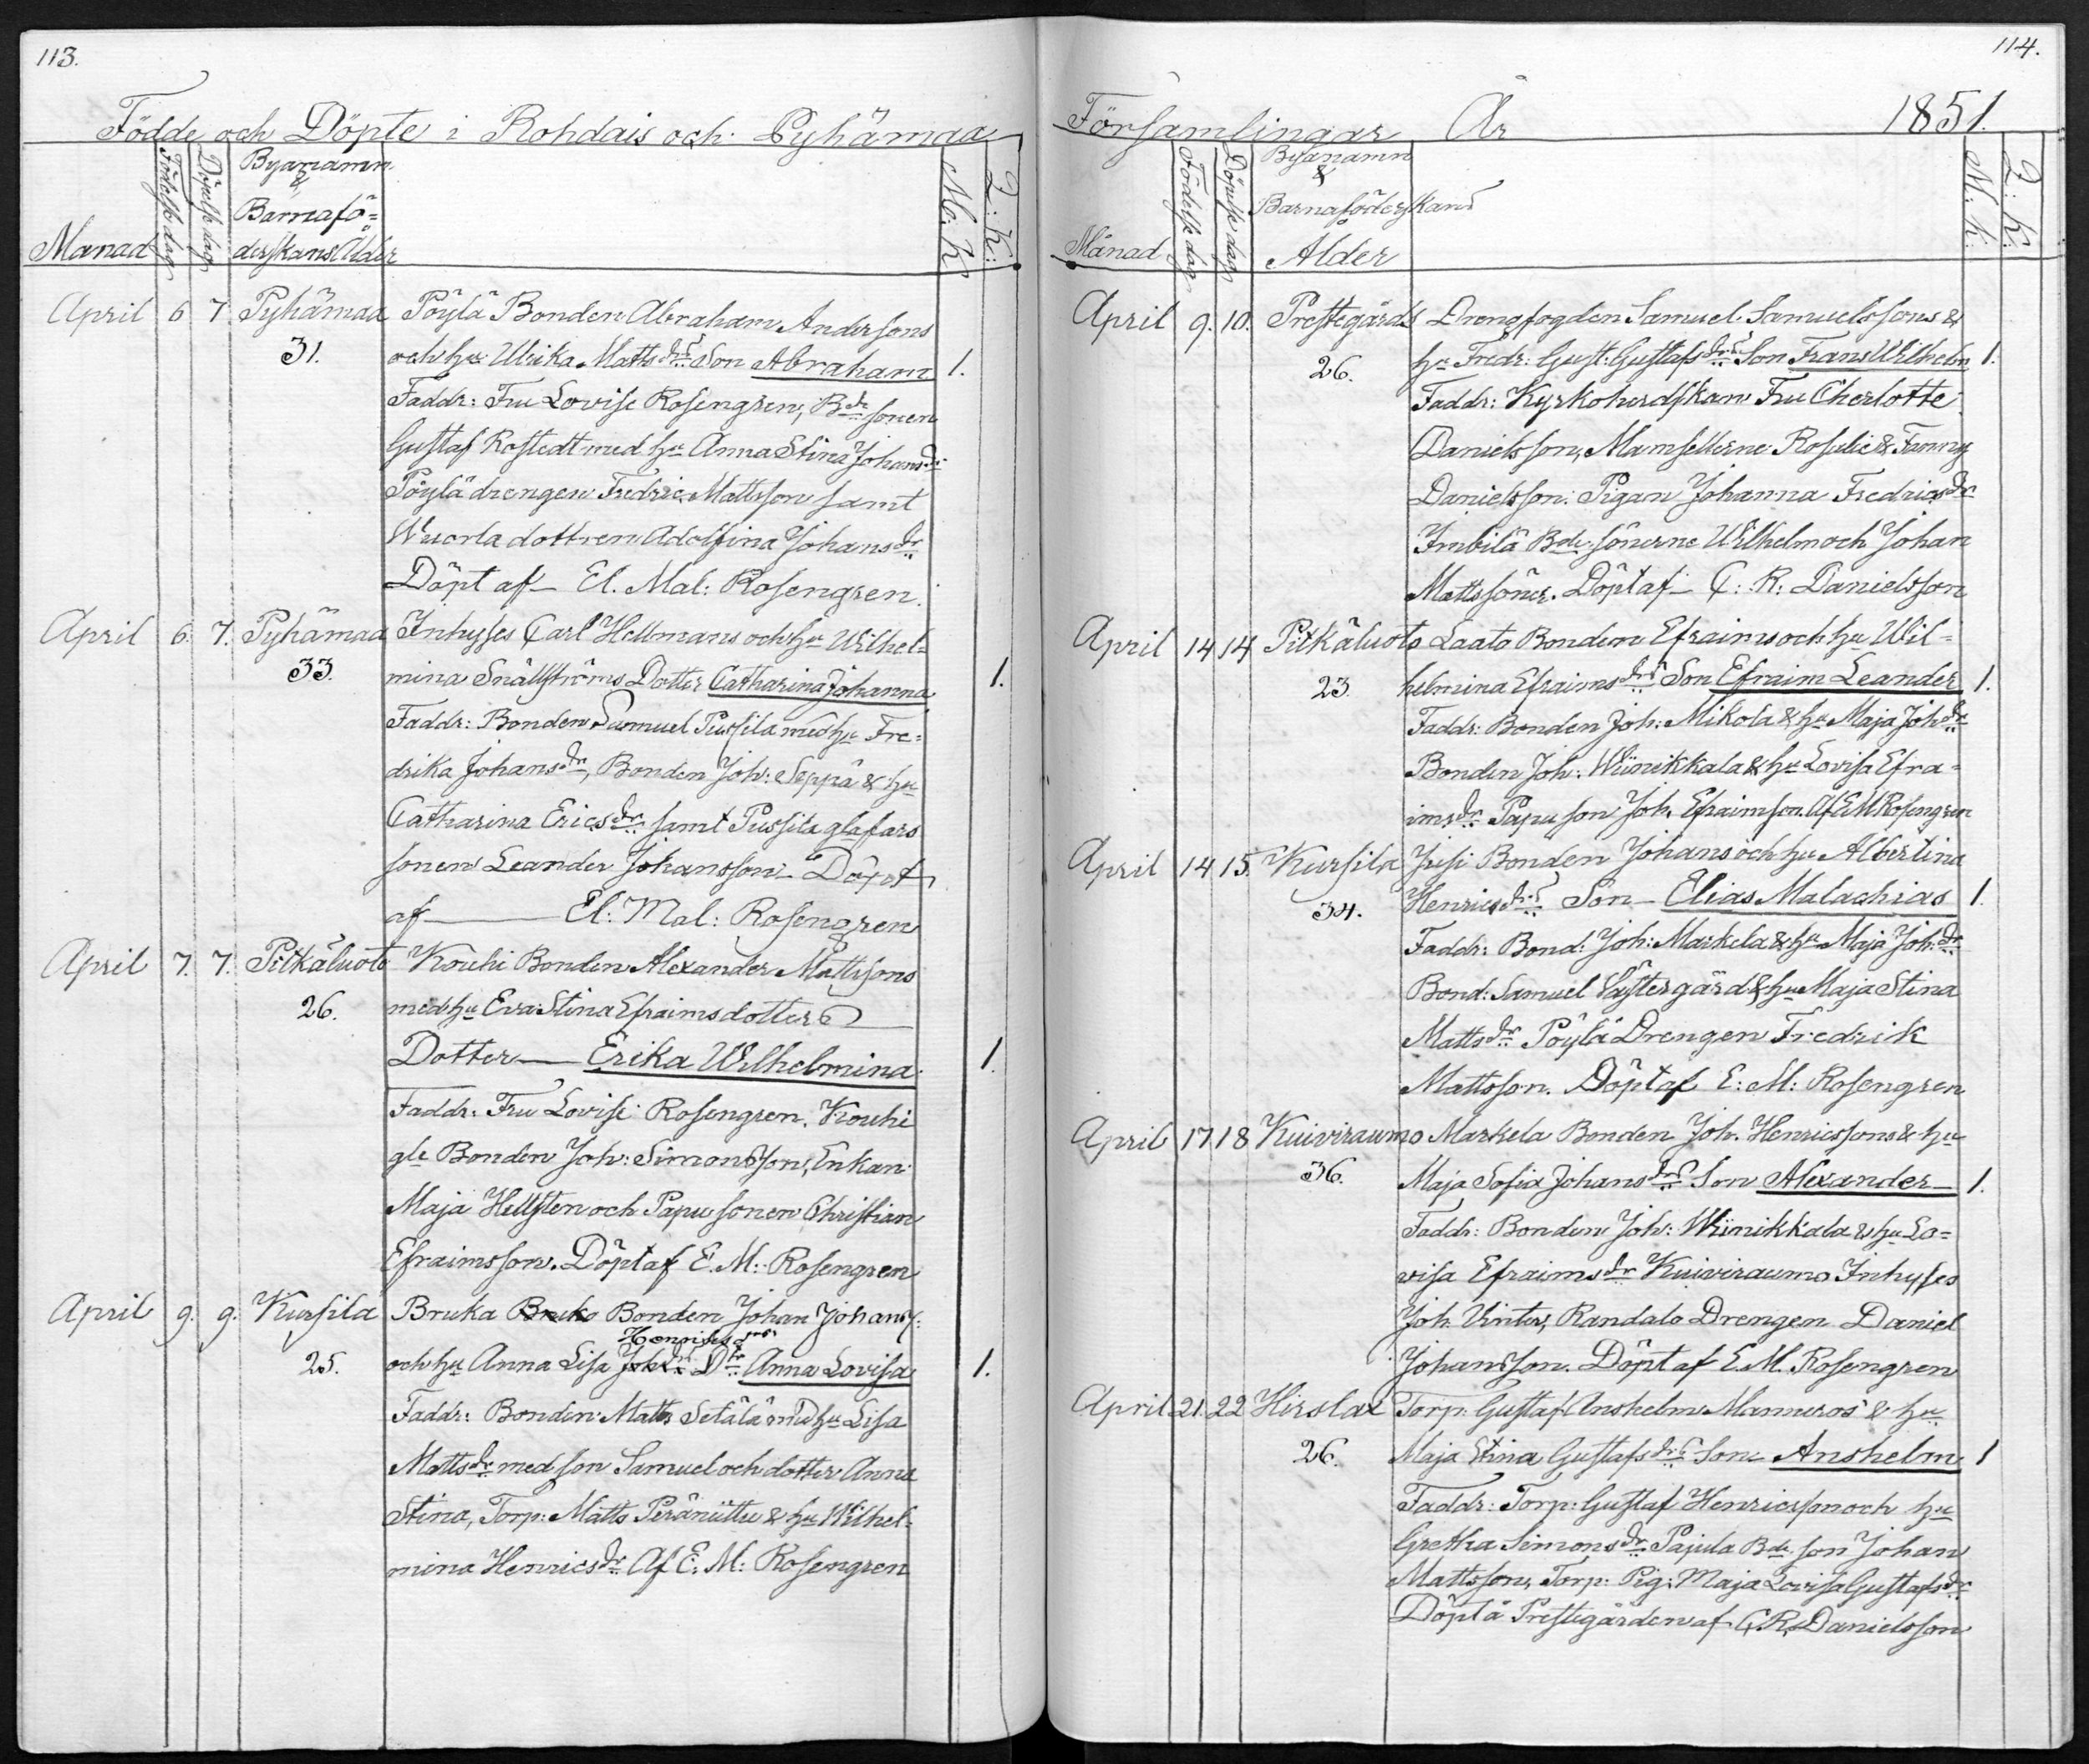 113.
Födde och Döpte i Rohdais och Pyhämaa
Månad
Födelse dag
Döpelse dag
Byanamn
&
Barnafö=
derskans Ålder
M: K:
Q: K:
April 6 7 Pyhämaa Pöylä Bonden Abraham Andersons
31. och hu Ulrika Matts drs Son Abraham 1.
Faddr: Fru Lovise Rosengren, Bde sonen
Gustaf Rostedt med hu Anna Stina Johans dr
Pöylä drengen Fredric Mattsson samt
Wuorla dottren Adolfina Johans dr
Döpt af El. Mal: Rosengren.
April 6. 7. Pyhämaa Inhyses Carl Hellmans och hu Wilhel=
33. mina Snällströms Dotter Catharina Johanna 1.
Faddr: Bonden Samuel Pussila med hu Fre=
drika Johans dr, Bonden Joh: Seppä & hu
Catharina Erics dr samt Pussila glafars
sonen Leander Johansson Döpt
af El: Mal: Rosengren
April 7. 7. Pitkäluoto Kouhi Bonden Alexander Mattsons
26. med hu Eva Stina Efraimsdotters
Dotter Erika Wilhelmina 1.
Faddr: Fru Lovise Rosengren. Kouhi
gle Bonden Joh: Simonsson, Enkan
Maja Hellsten och Papu sonen Christian
Efraimsson. Döpt af E. M: Rosengren
April 9. 9. Kursila Bruka Bruko Bonden Johan Johans:
Henrics drs
25. och hu Anna Lisa Joh drs Dr Anna Lovisa 1.
Faddr: Bonden Matts Setälä med hu Lisa
Matts dr med son Samuel och dotter Anna
Stina, Torp: Matts Peräniittu & hu Wilhel=
mina Henrics dr Af E: M: Rosengren
114.
Församlingar År 1851.
Månad
Födelse dag
Döpelse dag
Byanamn
&
Barnaföderskans
Ålder
M: K:
Q: K:
April 9. 10. Prestegårds Drengfogden Samuel Samuelssons &
26. hu Fredr: Gust: Gustafs drs Son Frans Wilhelm 1.
Faddr: Kyrkoherdskan Fru Cherlotte
Danielsson, Mamsellerne Rosalie & Fanny
Danielsson. Pigan Johanna Fredrics dr
Imbilä Bde: sönerne Wilhelm och Johan
Mattssöner. Döpt af C: R: Danielsson
April 14 14 Pitkäluoto Laato Bonden Efraims och hu Wil=
23. helmina Efraims drs Son Efraim Leander 1.
Faddr: Bonden Joh: Mikola & hu Maja Joh dr
Bonden Joh: Wiinikkala & hu Lovisa Efra=
ims dr Papu son Joh. Efraimson. Af E M Rosengren
April 14 15. Kursila Jusi Bonden Johans och hu Albertina
34. Henrics drs Son Elias Malachias 1.
Faddr: Bond: Joh: Markela & hu Maja Joh: dr
Bond: Samuel Västergård & hu Maja Stina
Matts dr Pöylä Drengen Fredrik
Mattsson. Döpt af E: M: Rosengren
April 17. 18 Kuiviraumo Markela Bonden Joh. Henricssons & hu
36. Maja Sofia Johans drs Son Alexander 1.
Faddr: Bonden Joh: Wiinikkala & hu Lo=
visa Efraims dr Kuiviraumo Inhyses
Joh. Vinter, Randalo Drengen Daniel
Johansson. Döpt af E. M. Rosengren
April 21. 22 Hirslax Torp: Gustaf Anshelm Manneros & hu
26. Maja Stina Gustafs drs Son Anshelm 1
Faddr: Torp: Gustaf Henricsson och hu
Gretha Simons dr Pajula Bde son Johan
Mattsson, Torp: Pig: Maja Lovisa Gustafs dr
Döpt å Prestegården af C. R. Danielsson